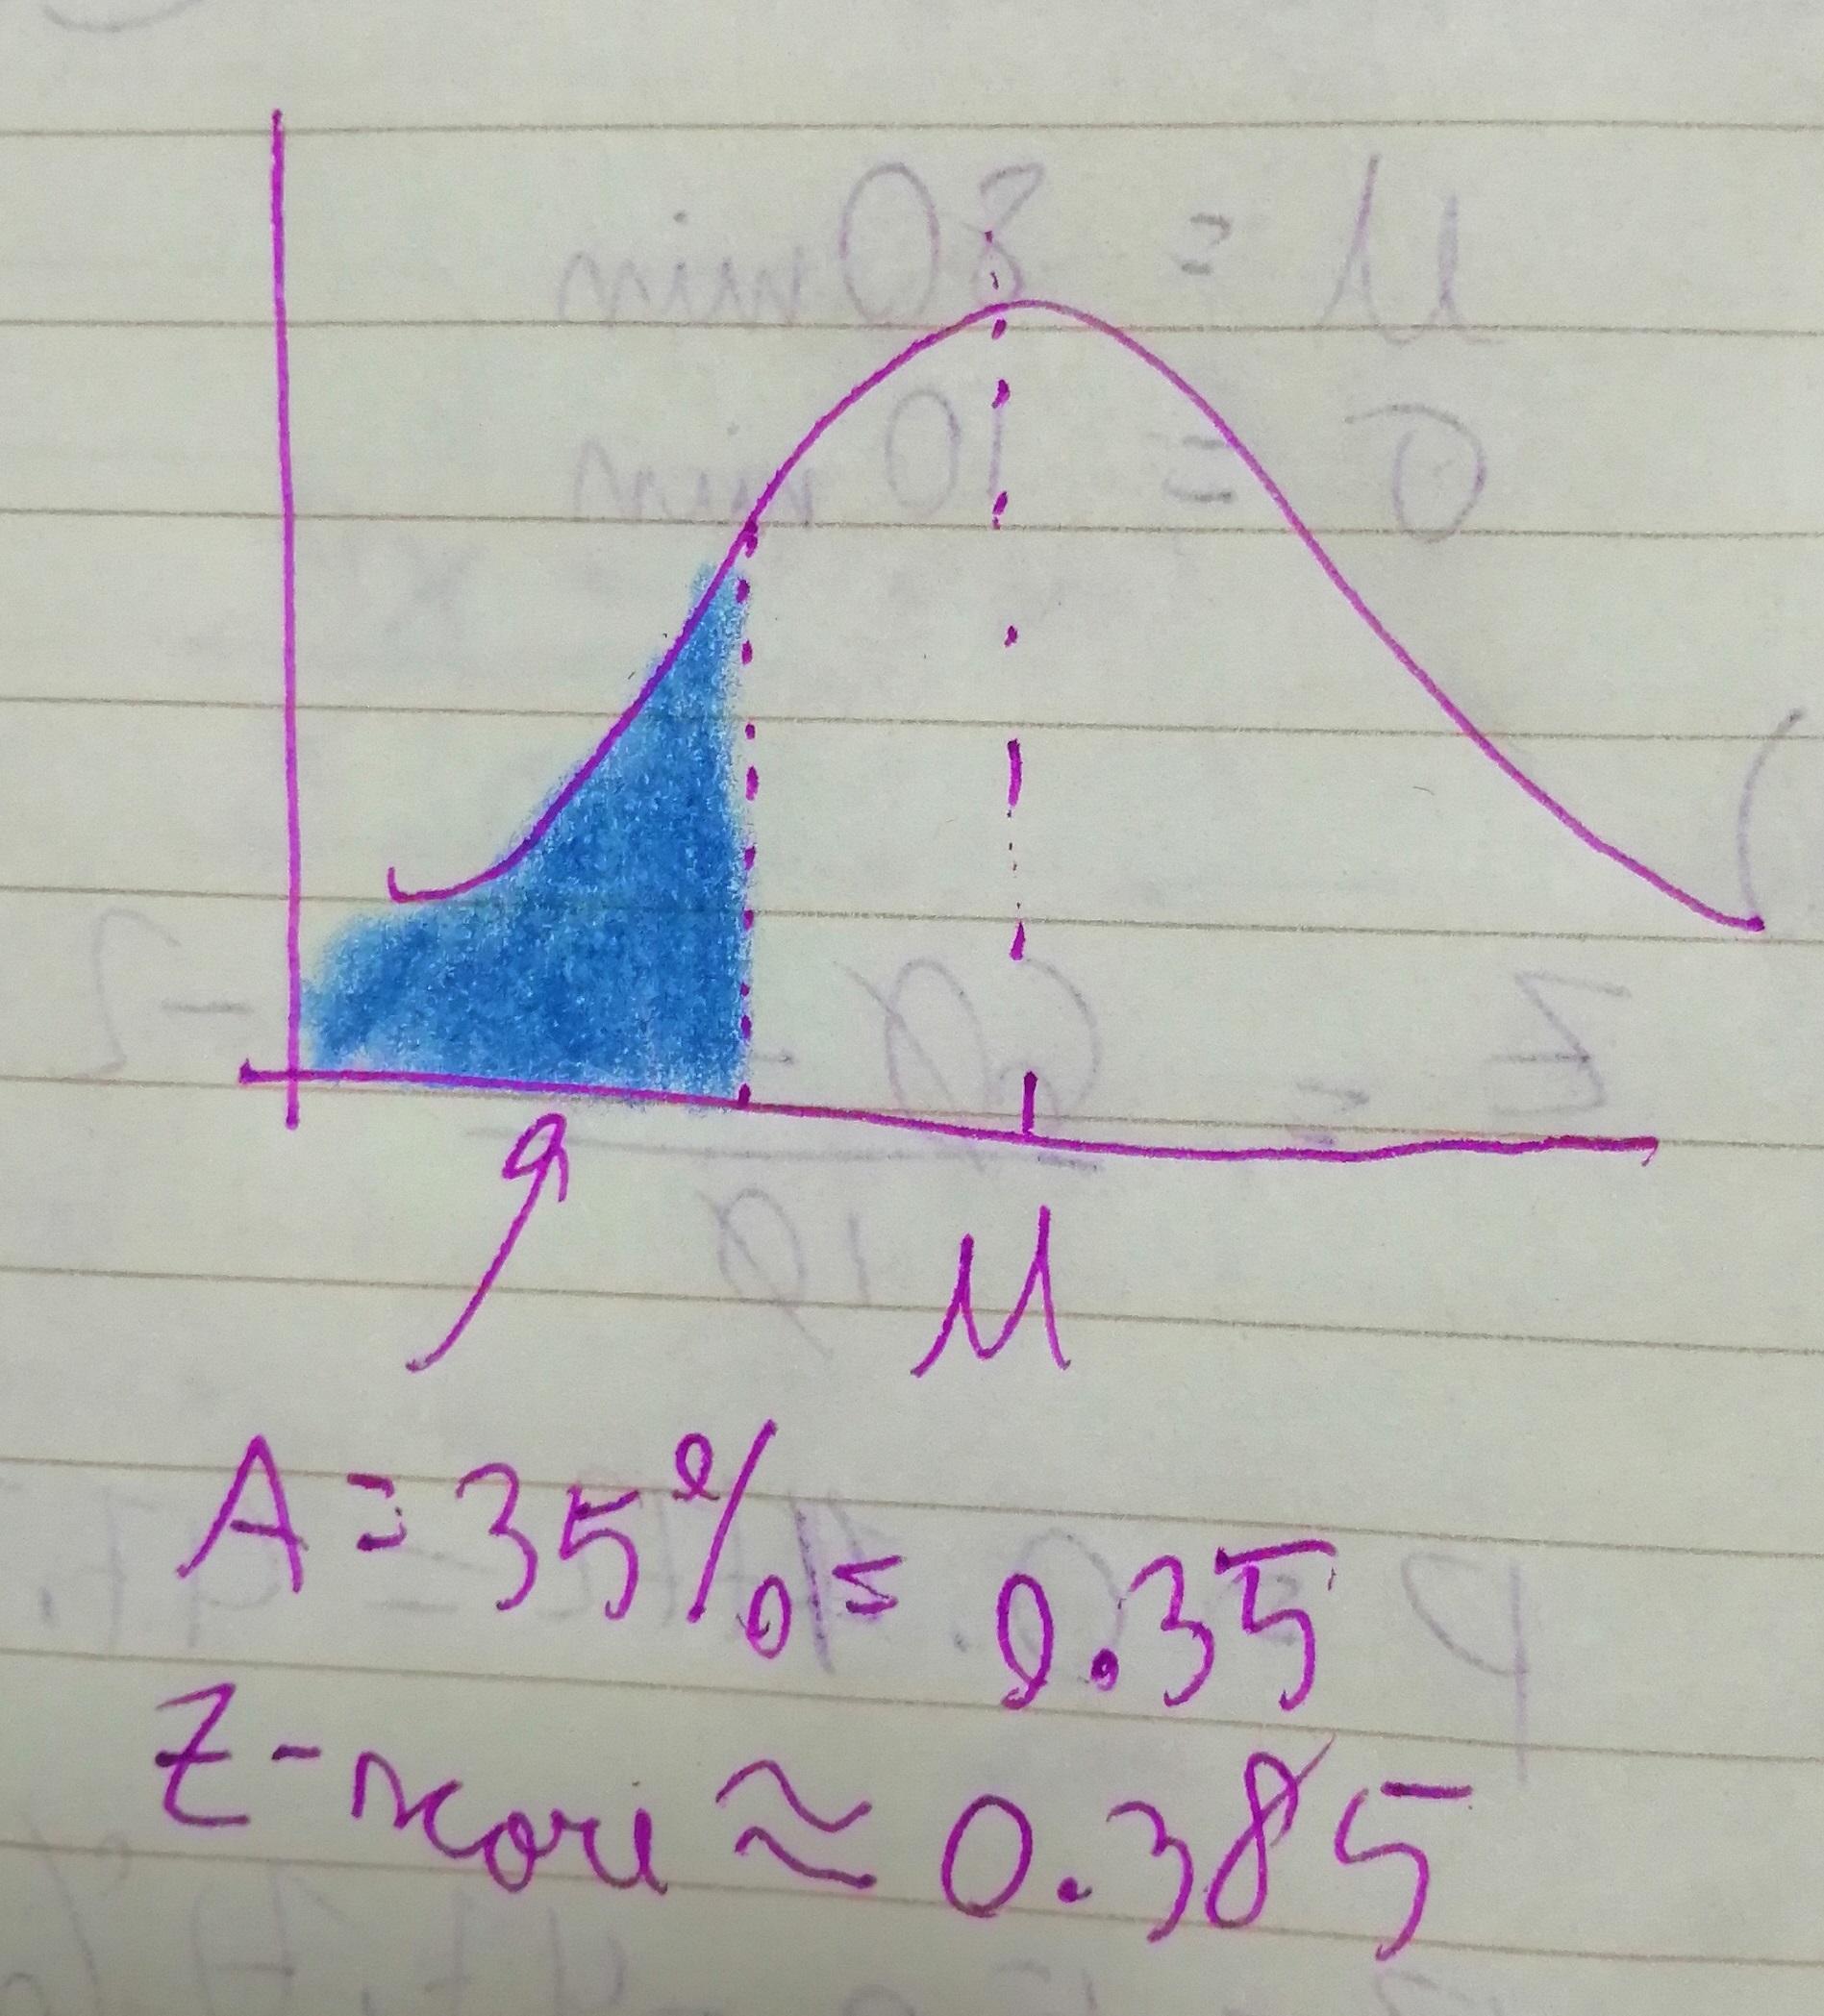 μ
A = 35% = 0.35
Z-score ≈ 0.385